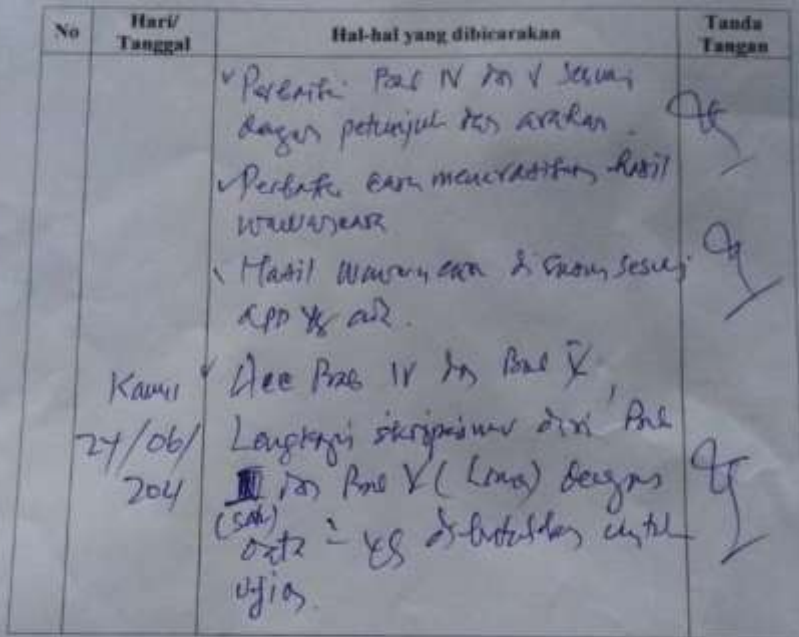 No Hari/ Tanggal Hal-hal yang dibicarakan Tanda Tangan
Perbaiki Bab IV dan V sesuai
dengan petunjuk dan arahan.
Perbaiki cara menarasikan hasil
wawancara
Hasil wawancara di susun sesuai
yg ada.
Kamis Acc Bab IV dan Bab V
24/06/ Lengkapi skripsimu dari Bab
dan Bab V (Lima) dengan
(satu)
data yg dibutuhkan untuk
ujian.